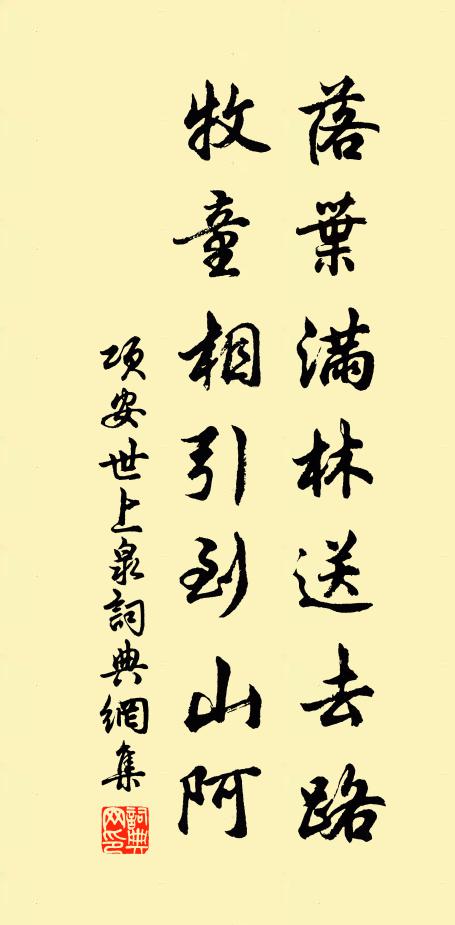 落葉滿林送去路
牧童相引到山阿
項安世上泉詞典網集
詞典網印